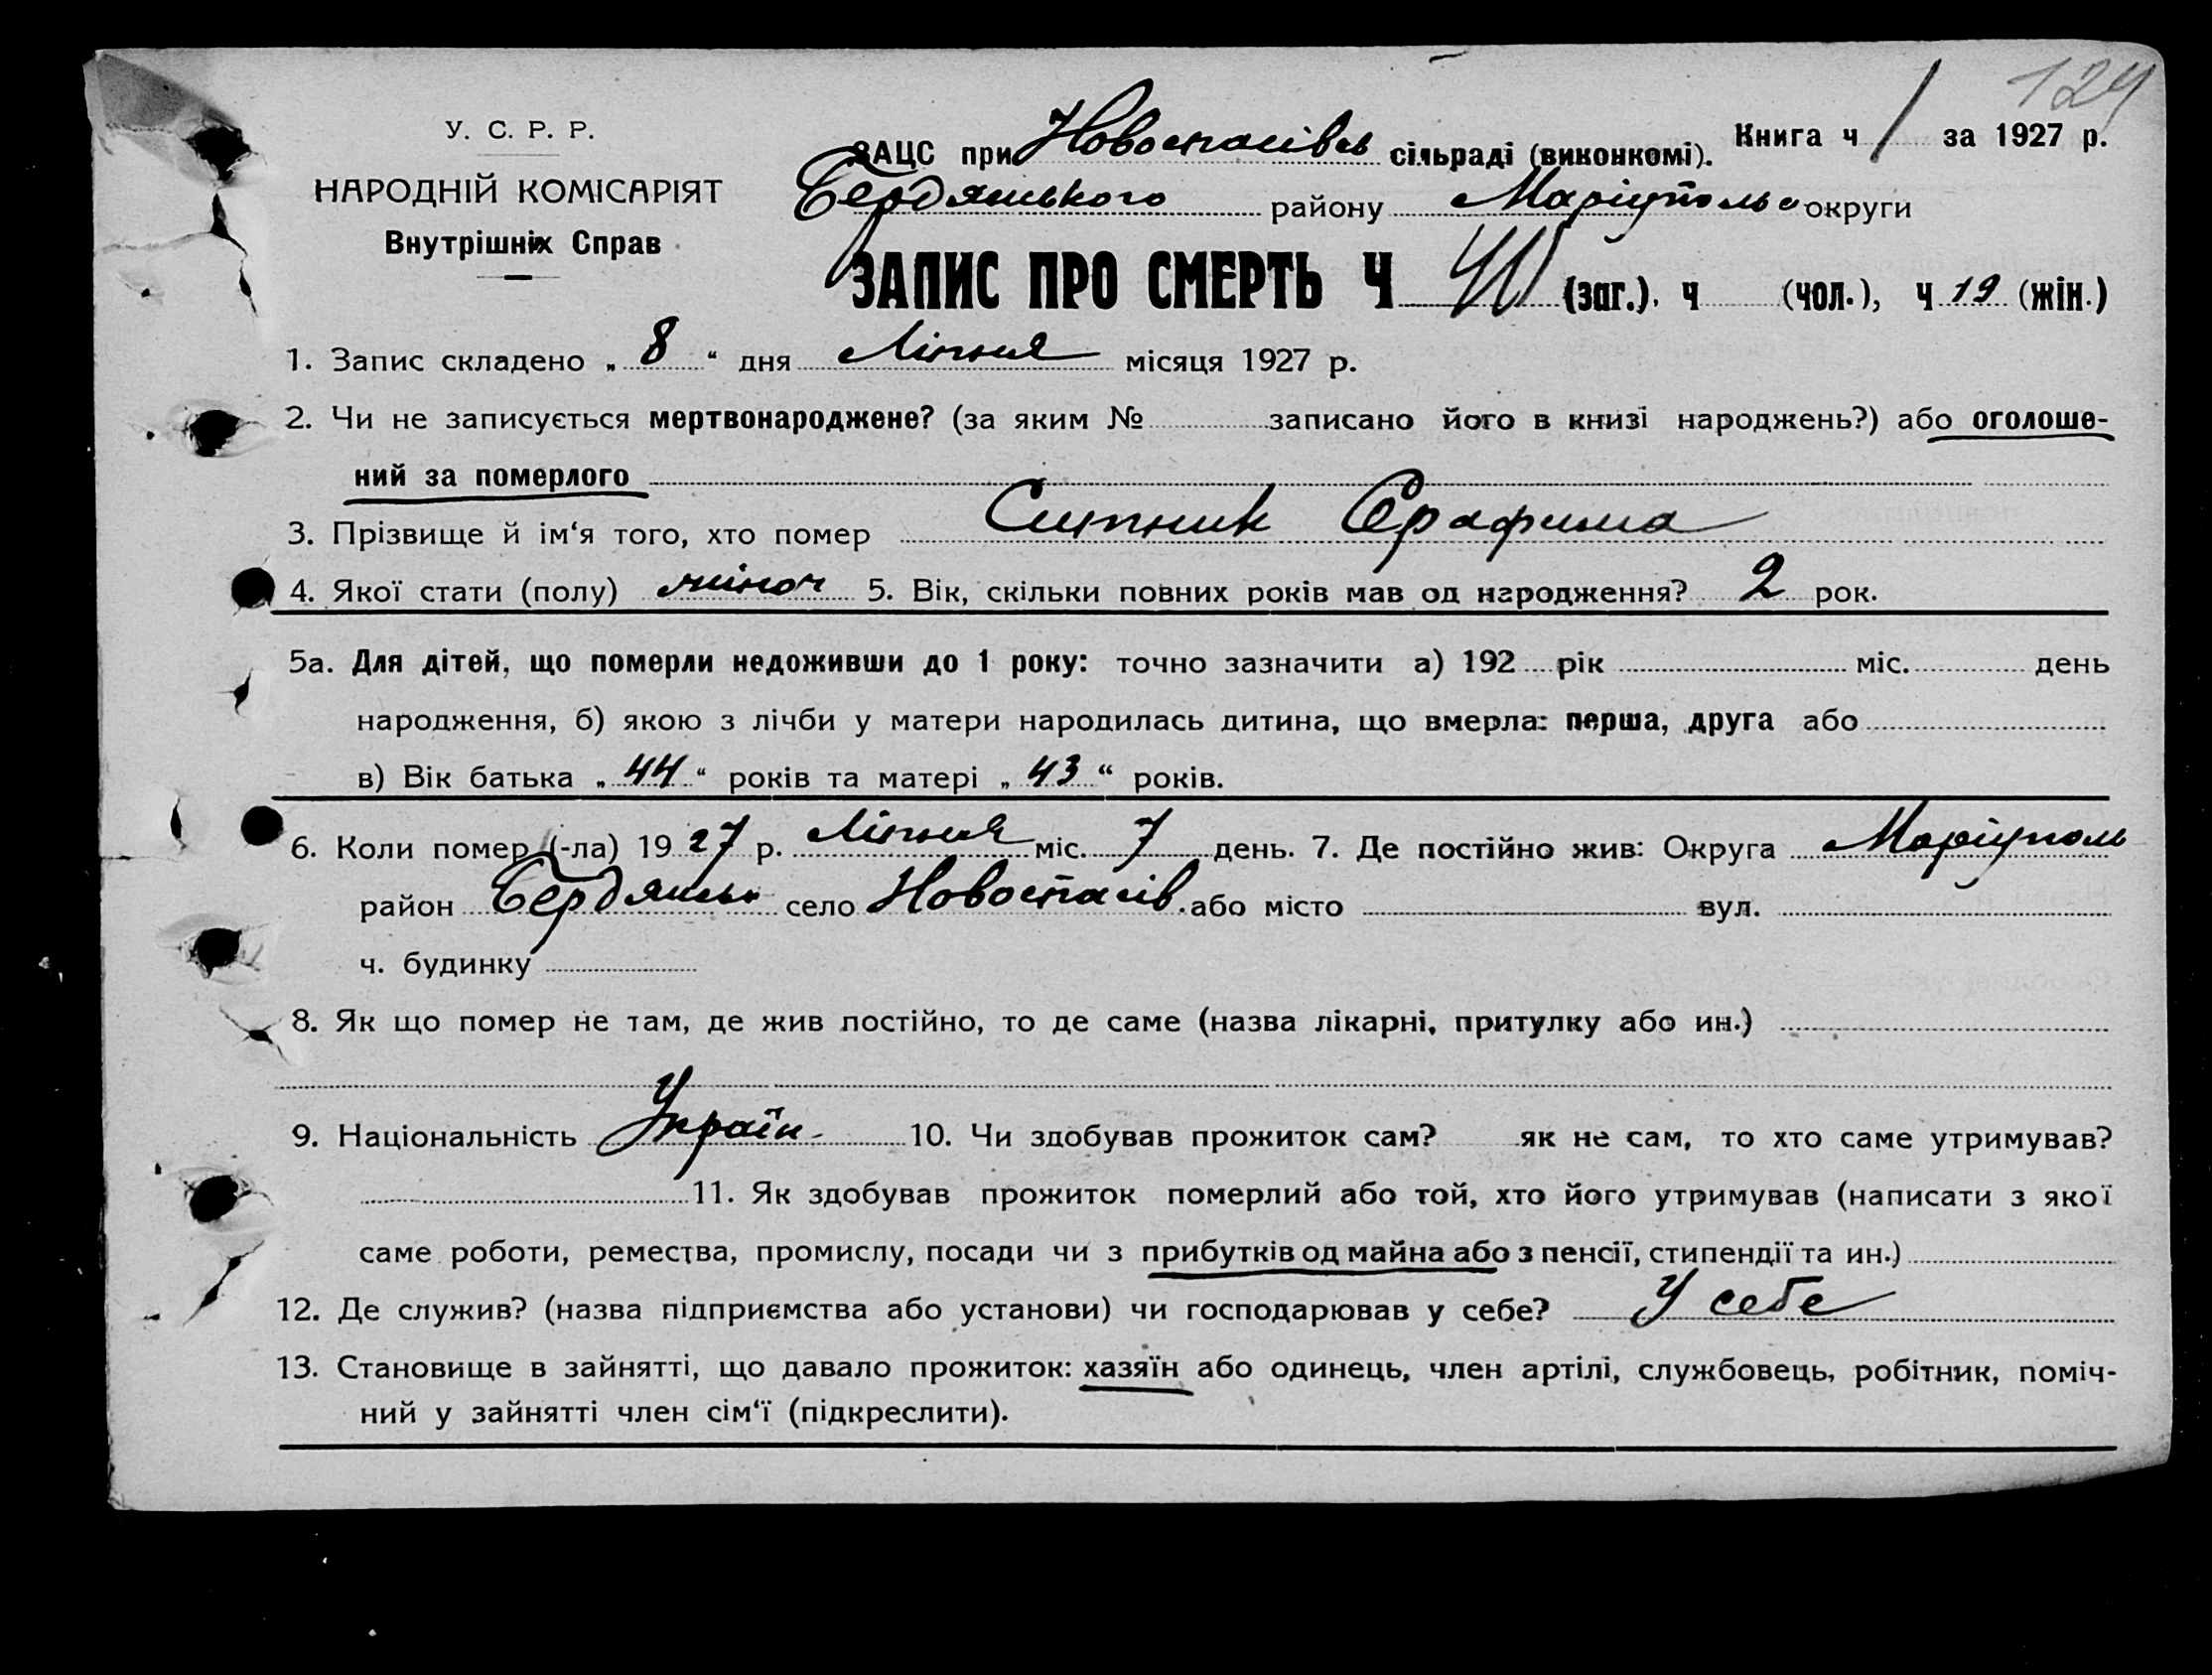 124
У. С. Р. Р.
НАРОДНІЙ КОМІСАРІЯТ
Внутрішніх Справ
ЗАЦС при Новоспасівсь сільраді (виконкомі). Книга ч 1 за 1927 р.
Бердянського району Маріупольс округи
ЗАПИС ПРО СМЕРТЬ Ч (заг.). ч (чол.), ч 19 (жін.)
1. Запис складено „ 8 “ дня Ліпня місяця 1927 р.
2. Чи не записується мертвонароджене? (за яким № записано його в книзі народжень?) або оголоше-
ний за померлого
3. Прізвище й ім‘я того, хто помер Ситник Серафима
4. Якої стати (полу) жіноч 5. Вік, скільки повних років мав од народження? 2 рок.
5а. Для дітей, що померли недоживши до 1 року: точно зазначити а) 192 рік міс. день
народження, б) якою з лічби у матери народилась дитина, що вмерла: перша, друга або
в) Вік батька „ 44 “ років та матері „ 43 “ років.
6. Коли помер (-ла) 19 27 р. Ліпня міс. 7 день. 7. Де постійно жив: Округа Маріуполь
район Бердянськ село Новоспасів. або місто вул.
ч. будинку
8. Як що помер не там, де жив постійно, то де саме (назва лікарні, притулку або ин.)
9. Національність Україн 10. Чи здобував прожиток сам? як не сам, то хто саме утримував?
11. Як здобував прожиток померлий або той, хто його утримував (написати з якої
саме роботи, ремества, промислу, посади чи з прибутків од майна або з пенсії, стипендії та ин.)
12. Де служив? (назва підприємства або установи) чи господарював у себе? У себе
13. Становище в зайнятті, що давало прожиток: хазяїн або одинець, член артілі, службовець, робітник, поміч-
ний у зайнятті член сім‘ї (підкреслити).